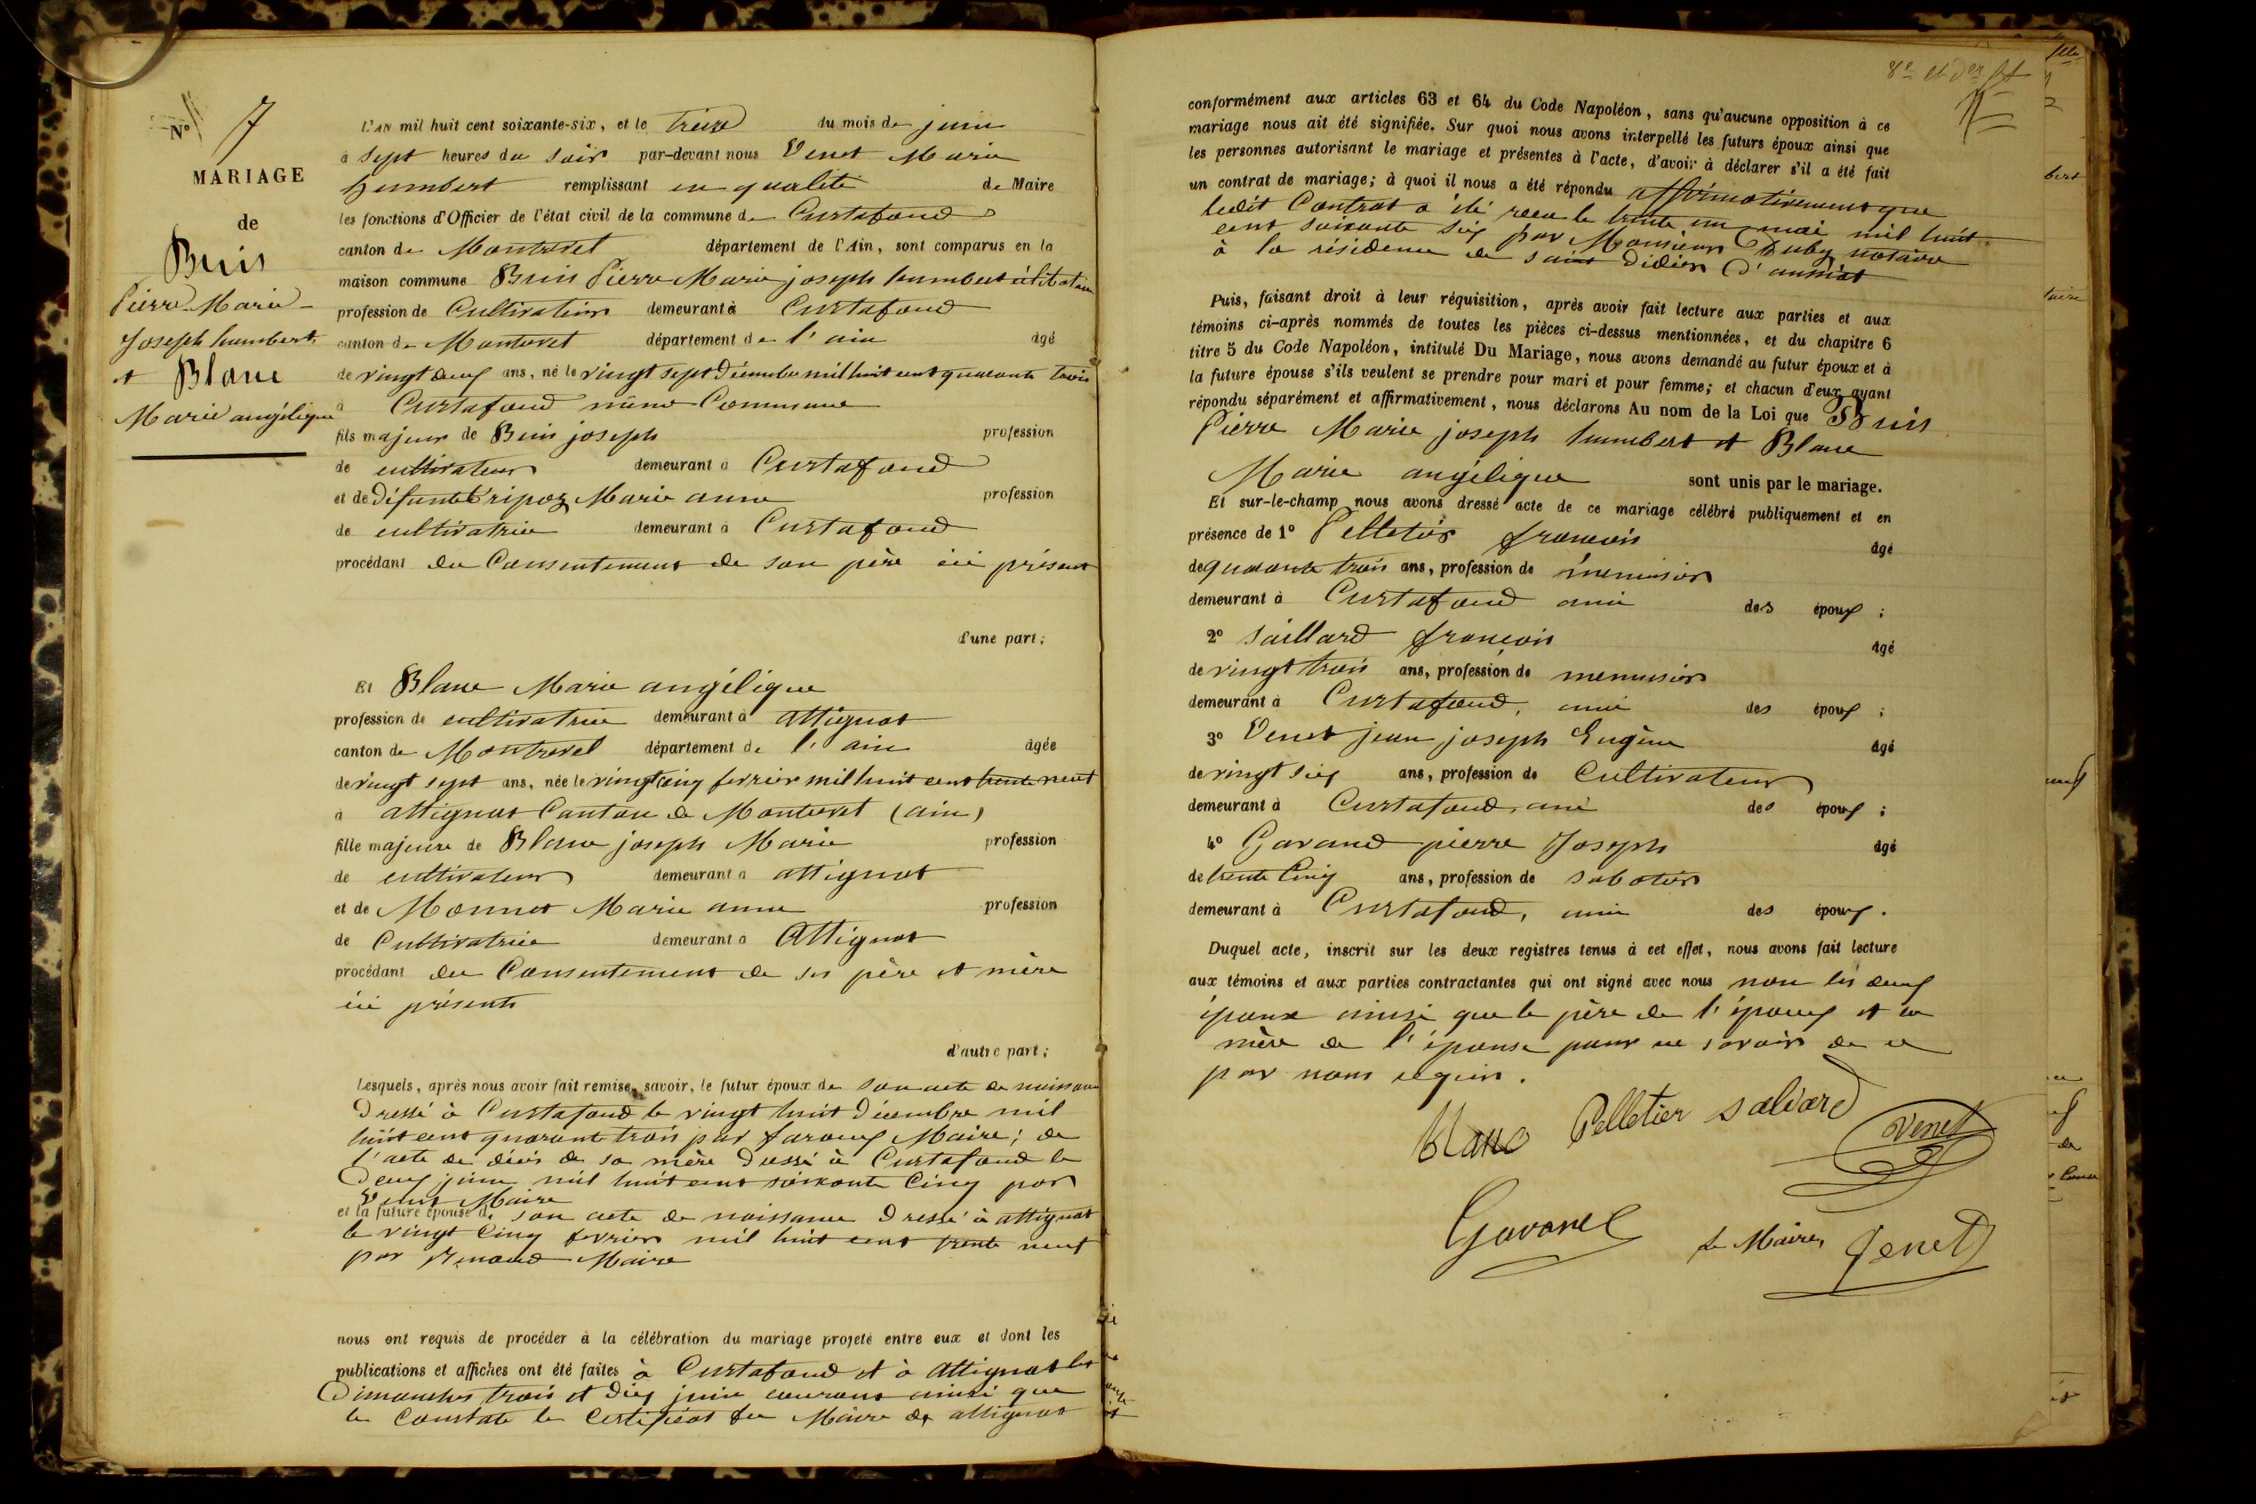 N° 7
MARIAGE
de
Buis
Pierre Marie
Joseph humbert
et Blanc
Marie angélique
L'AN mil huit cent soixante-six, et le treize du mois de juin
à sept heures du soir par-devant nous Venet Marie
humbert remplissant en qualité de Maire
les fonctions d'Officier de l'état civil de la commune de Curtafond
canton de Montrevel département de l'Ain, sont comparus en la
maison commune Buis Pierre Marie joseph humbert célibataire
profession de Cultivateur demeurant à Curtafond
canton de Montrevel département de l'ain âgé
de vingt deux ans, né le vingt sept Décembre mil huit cent quarante trois
à Curtafond même Commune
fils majeur de Buis joseph profession
de cultivateur demeurant à Curtafond
et de défunte Tripoz Marie anne profession
de cultivatrice demeurant à Curtafond
procédant du Consentement de son père ici présent
d'une part;
Et Blanc Marie angélique
profession de cultivatrice demeurant à attignat
canton de Montrevel département de l'ain âgée
de vingt sept ans, née le vingt cinq fevrier mil huit cent trente neuf
à attignat Canton de Montrevel (ain)
fille majeure de Blanc joseph Marie profession
de cultivateur demeurant à attignat
et de Monnet Marie anne profession
de Cultivatrice demeurant à Attignat
procédant du Consentement de ses père et mère
ici présents
d'autre part;
Lesquels, après nous avoir fait remise, savoir, le futur époux de son acte de naissance
Dressé à Curtafond le vingt huit Décembre mil
huit cent quarante trois par Maire; de
l'acte de décès de sa mère Dressé à Curtafond le
Deux juin mil huit cent soixante Cinq par
Venet Maire
et la future épouse de son acte de naissance Dressé à attignat
le vingt Cinq fevrier mil huit cent trente neuf
par Renaud Maire
nous ont requis de procéder à la célébration du mariage projeté entre eux et dont les
publications et affiches ont été faites à Curtafond et à Attignat les
Dimanches trois et Dix juin courant ainsi que
le Constate le Certificat du Maire de attignat
conformément aux articles 63 et 64 du Code Napoléon, sans qu'aucune opposition à ce
mariage nous ait été signifiée. Sur quoi nous avons interpellé les futurs époux ainsi que
les personnes autorisant le mariage et présentes à l'acte, d'avoir à déclarer s'il a été fait
un contrat de mariage; à quoi il nous a été répondu affirmativement que
ledit Contrat a été recu le trente un mai mil huit
cent soixante six par Monsieur Duby notaire
à la résidence de saint Didier D'aussiat
Puis, faisant droit à leur réquisition, après avoir fait lecture aux parties et aux
témoins ci-après nommés de toutes les pièces ci-dessus mentionnées, et du chapitre 6
titre 5 du Code Napoléon, intitulé Du Mariage, nous avons demandé au futur époux et à
la future épouse s'ils veulent se prendre pour mari et pour femme; et chacun d'eux ayant
répondu séparément et affirmativement, nous déclarons Au nom de la Loi que Buis
Pierre Marie joseph humbert et Blanc
Marie angélique sont unis par le mariage.
Et sur-le-champ nous avons dressé acte de ce mariage célébré publiquement et en
présence de 1° Pelletier françois âgé
de quarante trois ans, profession de menuisier
demeurant à Curtafond ami des époux ;
2° Saillard françois âgé
de vingt trois ans, profession de menuisier
demeurant à Curtafond, ami des époux ;
3° Venet jean joseph Eugène âgé
de vingt six ans, profession de Cultivateur
demeurant à Curtafond, ami des époux ;
4° Gavand pierre Joseph âgé
de trente Cinq ans, profession de sabotier
demeurant à Curtafond, ami des époux.
Duquel acte, inscrit sur les deux registres tenus à cet effet, nous avons fait lecture
aux témoins et aux parties contractantes qui ont signé avec nous non les deux
époux ainsi que le père de l'époux et la
mère de l'épouse pour ne savoir de ce
par nous requis.
Blanc Pelletier saliard
Venet
Gavand
Le Maire, Venet